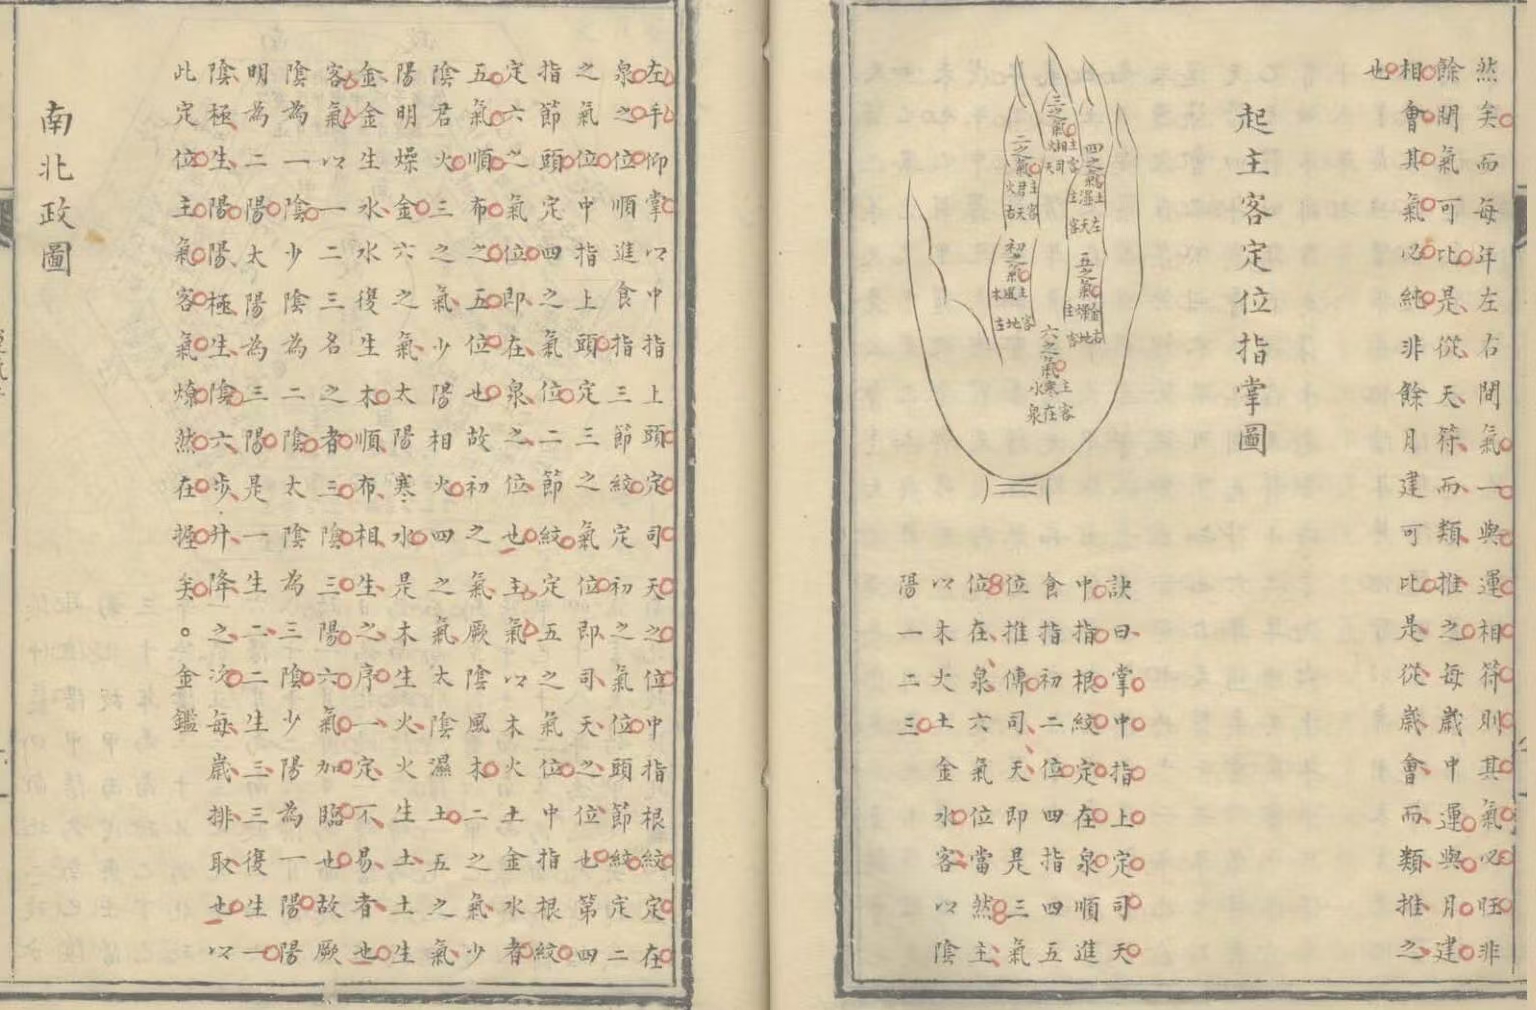 然矣而每年左右間氣一與運相符則其氣必旺非
餘閒氣可比是從天符而類推之每歲中運與月建
相會其氣必純非餘月建可比是從歲會而類推之
也
起主客定位指掌圖
四之氣 主濕土 客天左
三之氣 主相火 客司天
二之氣 主君火 客天右
五之氣 主燥金 客地右
初之氣 主風木 客地左
六之氣 主寒水 客在泉
訣曰掌中指上定司天
中指根紋定在泉順進
食指初二位四指四五
位推傳司天即是三氣
位在泉六氣位當然主
以木火土金水客以陰
陽一二三
左手仰掌以中指上頭定司天之位中指根紋定在
泉之位順進食指三節紋定初之氣位頭節紋定二
之氣位中指上頭定三之氣位即司天之位也第四
指節頭定四之氣位二節紋定五之氣位中指根紋
定六之氣位即在泉之位也主氣以木火土金水者
五氣順布之五位也故初之氣厥陰風木二之氣少
陰君火三之氣少陽相火四之氣太陰濕土五之氣
陽明燥金六之氣太陽寒水是木生火火生土土生
金金生水水復生木順布相生之序一定不易者也
客氣以一二三名之者三陰三陽六氣加臨也故厥
陰為一陰少陰為二陰太陰為三陰少陽為一陽陽
明為二陽太陽為三陽是一生二二生三三復生一
陰極生陽陽極生陰六步升降之次每歲排取也以
此定位主氣客氣燎然在握矣。金鑑
南北政圖